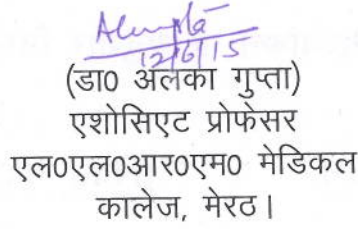 12/6/15
(डा0 अलका गुप्ता)
एशोसिएट प्रोफेसर
एल0एल0आर0एम0 मेडिकल
कालेज, मेरठ।